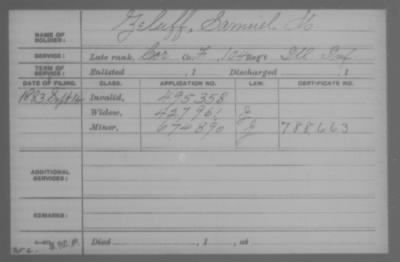 NAME OF SOLDIER: Zeluff, Samuel M
SERVICE: Late rank, Cor Co. F, 104 Reg't Ill Inf
TERM OF SERVICE: Enlisted , 1 Discharged , 1
DATE OF FILING. CLASS. APPLICATION NO. LAW. CERTIFICATE NO.
1883 Sept 14 Invalid, 495358
Widow, 427961
Minor, 674890 788663
ADDITIONAL SERVICES:
REMARKS:
Died , 1 , at